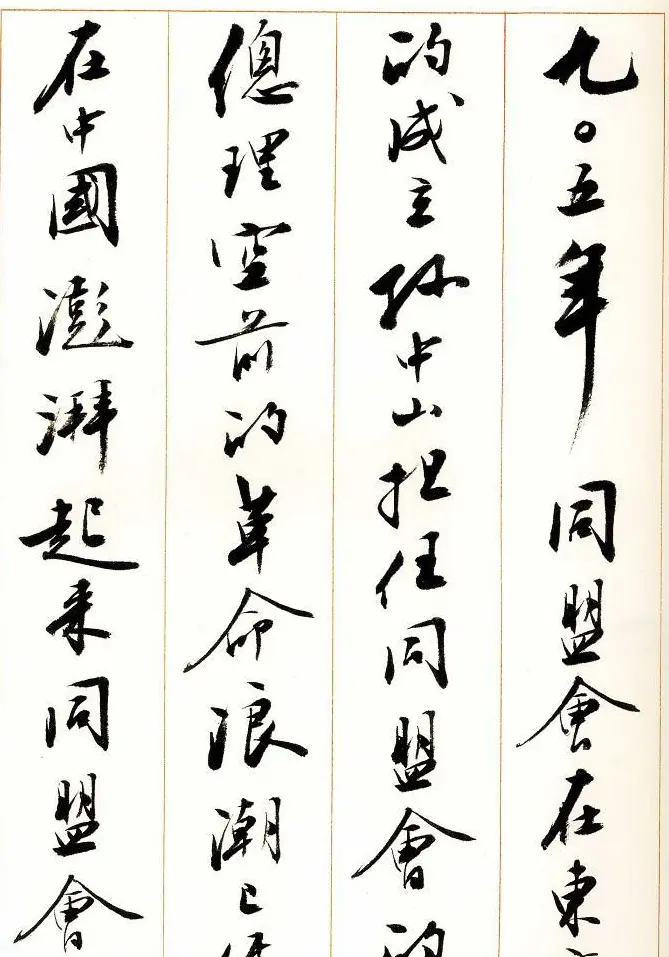 九〇五年同盟會在東
的成立孙中山担任同盟會的
總理空前的革命浪潮已
在中國澎湃起来同盟會